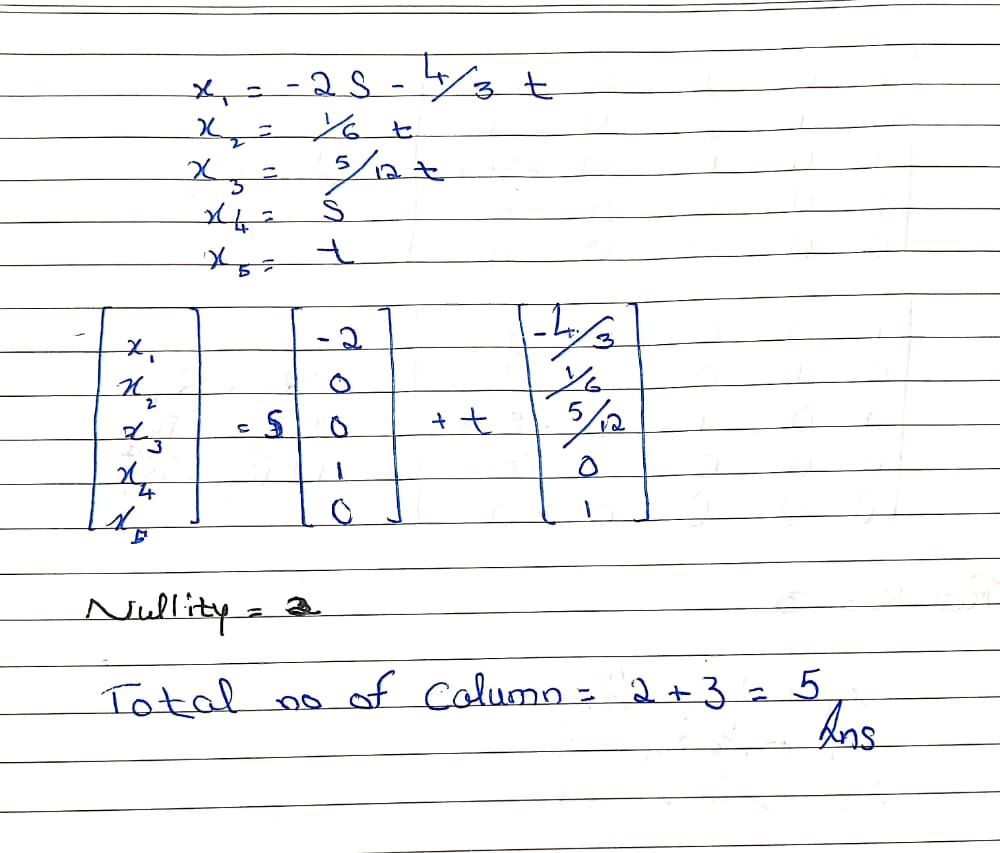 x₁ = -2S - 4/3 t
x₂ = 1/6 t
x₃ = 5/12 t
x₄ = S
x₅ = t
[x₁ x₂ x₃ x₄ x₅] = S [-2 0 0 1 0] + t [-4/3 1/6 5/12 0 1]
Nullity = 2
Total no of Column = 2 + 3 = 5
Ans